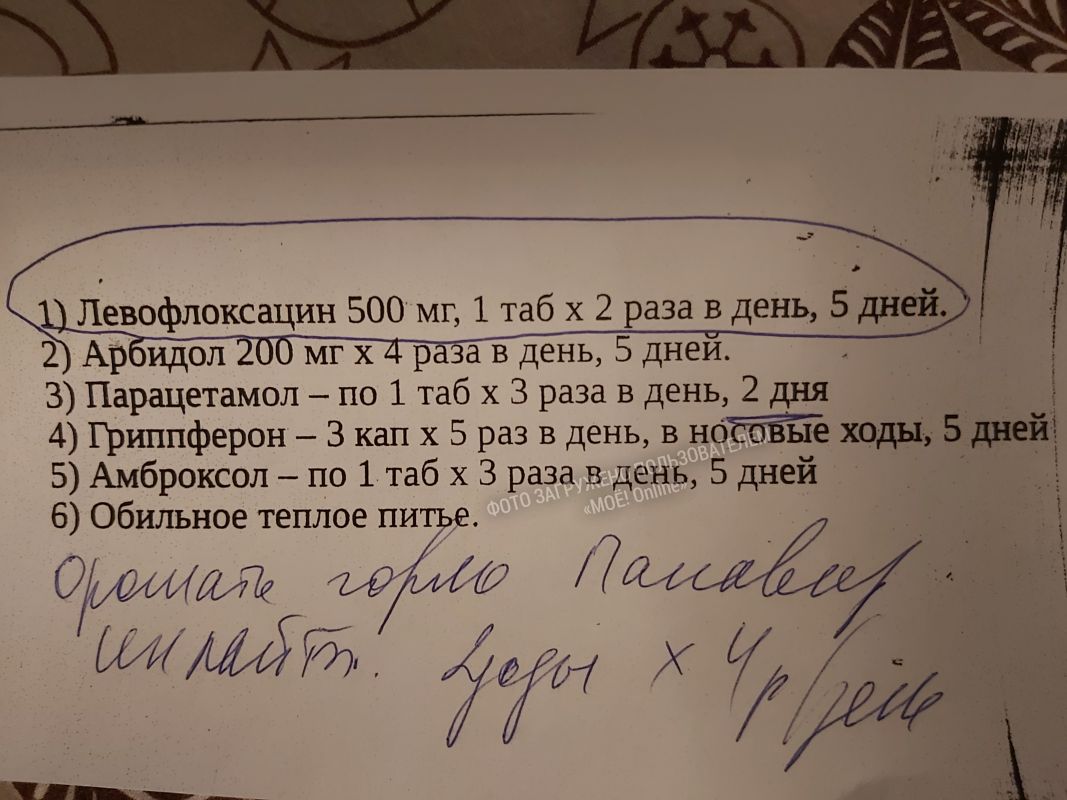 1) Левофлоксацин 500 мг, 1 таб х 2 раза в день, 5 дней.
2) Арбидол 200 мг х 4 раза в день, 5 дней.
3) Парацетамол – по 1 таб х 3 раза в день, 2 дня
4) Гриппферон – 3 кап х 5 раз в день, в носовые ходы, 5 дней
5) Амброксол – по 1 таб х 3 раза в день, 5 дней
ФОТО ЗАГРУЖЕНО ПОЛЬЗОВАТЕЛЕМ
«МОЁ! Online»
6) Обильное теплое питье.
Орошать горло Панавир
инлайт. х 4 р/день